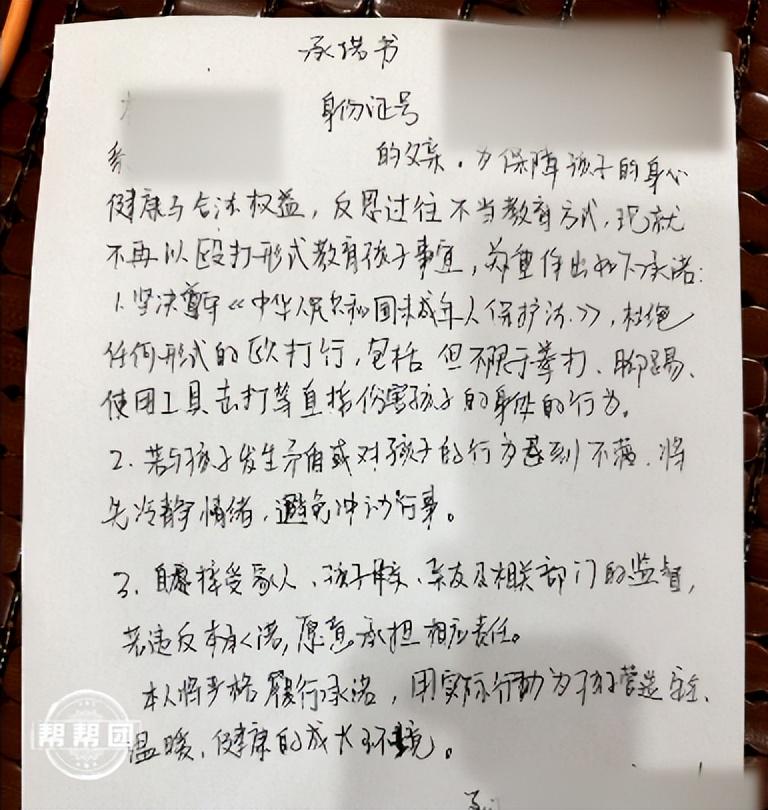 承诺书
身份证号
系 的父亲。为保障孩子的身心
健康与合法权益，反思过往不当教育方式，现就
不再以殴打形式教育孩子事宜，郑重作出如下承诺：
1.坚决遵守《中华人民共和国未成年人保护法》，杜绝
任何形式的欧打行，包括 但不限于拳打、脚踢、
使用工具击打等直接伤害孩子的身体的行为。
2.若与孩子发生矛盾或对孩子的行为感到不满，将
先冷静情绪，避免冲动行事。
3.自愿接受家人、孩子母亲、亲友及相关部门的监督，
若违反本承诺，愿意承担相应责任。
本人将严格履行承诺，用实际行動为孩子营造安全、
温暖、健康的成长环境。
帮帮团